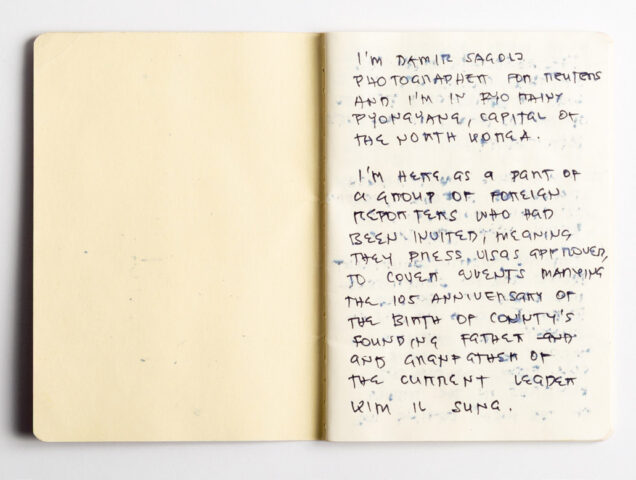 I'M DAMIR SAGOLJ
PHOTOGRAPHER FOR REUTERS
AND I'M IN RAINY
PYONGYANG, CAPITAL OF
THE NORTH KOREA.
I'M HERE AS A PART OF
A GROUP OF FOREIGN
REPORTERS WHO HAD
BEEN INVITED, MEANING
THEY PRESS VISAS APPROVED,
TO COVER EVENTS MARKING
THE 105 ANNIVERSARY OF
THE BIRTH OF COUNTY'S
FOUNDING FATHER AND
AND GRANFATHER OF
THE CURRENT LEADER
KIM IL SUNG.